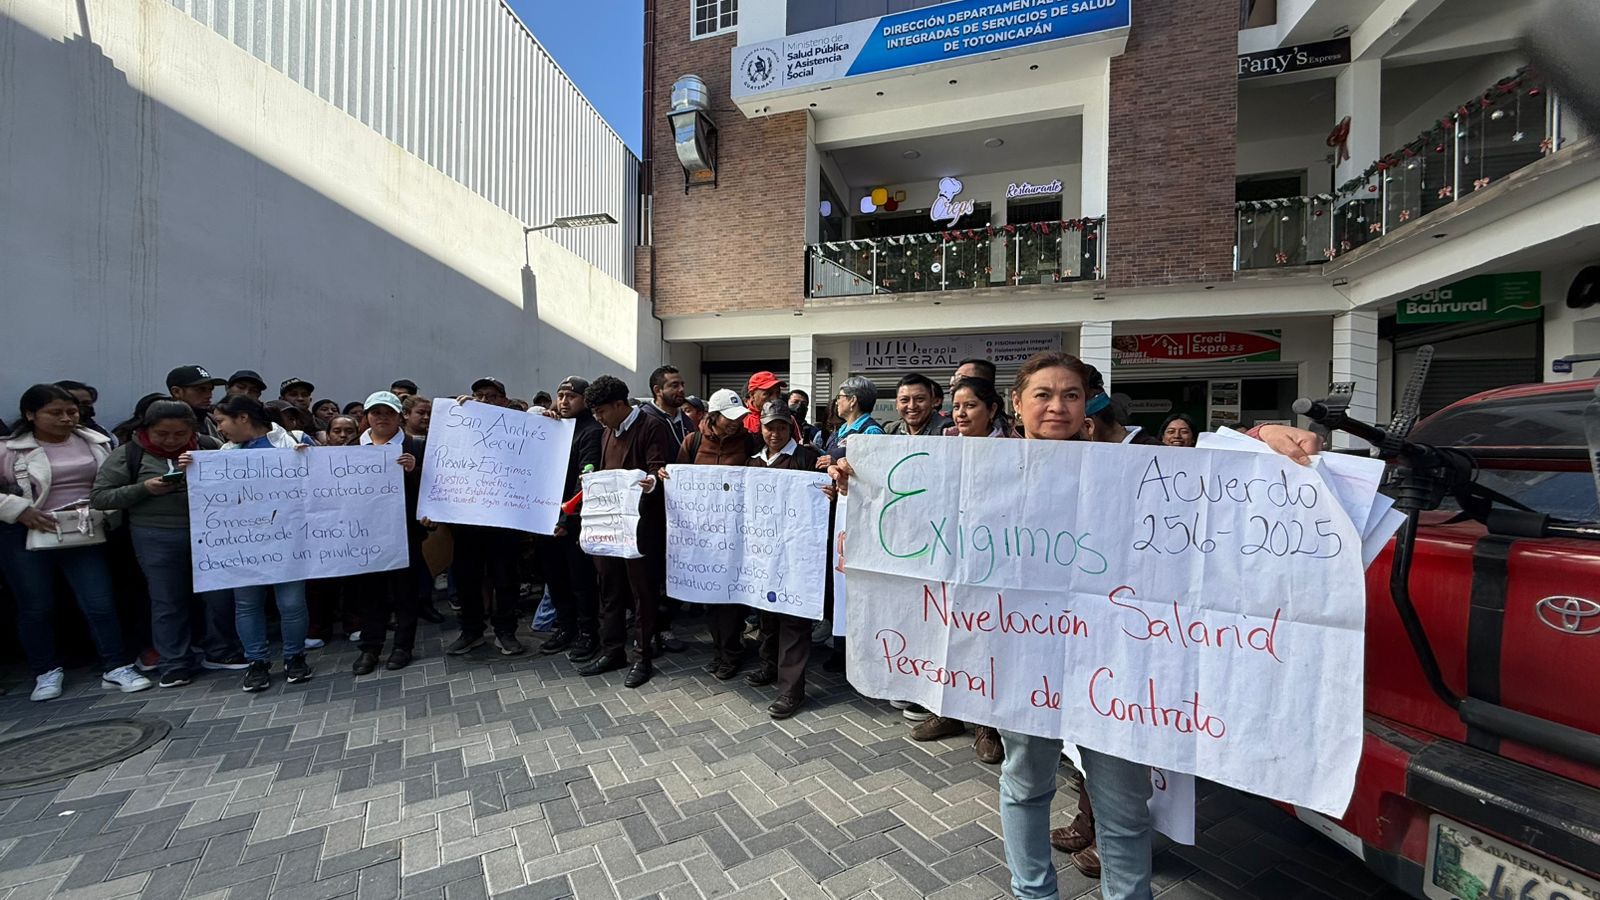 DIRECCIÓN DEPARTAMENTAL
INTEGRADAS DE SERVICIOS DE SALUD
DE TOTONICAPÁN
Ministerio de
Salud Pública
y Asistencia
Social
GUATEMALA
Fany's Express
Creps
Restaurante
Caja
Banrural
FISIOterapia
INTEGRAL
FISIOterapia Integral
fisioterapia integral
Credi
Express
PRÉSTAMOS E
INVERSIONES
Estabilidad laboral
ya ¡No más contrato de
6 meses!
• Contratos de 1 año: Un
derecho, no un privilegio.
San Andrés
Xecul
Presente Exigimos
nuestros derechos.
Exigimos Estabilidad Laboral,
Personal
"Trabajadores por
contrato unidos por la
estabilidad laboral
contratos de 1 año"
"Honorarios justos y
equitativos para todos
Exigimos
Acuerdo
256-2025
Nivelación Salarial
Personal de Contrato
GUATEMALA